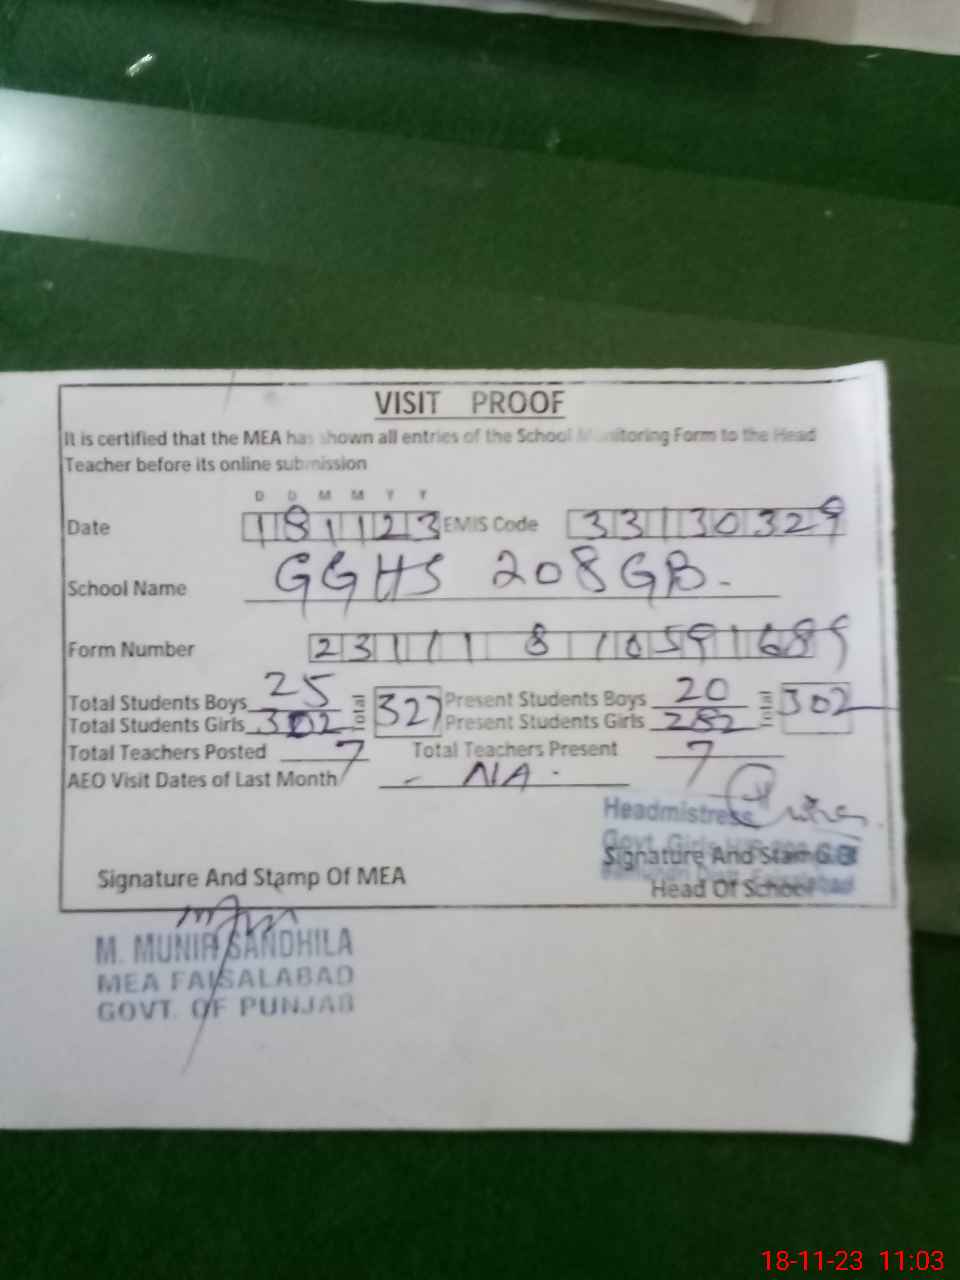 VISIT PROOF
It is certified that the MEA has shown all entries of the School Monitoring Form to the Head
Teacher before its online submission
D D M M Y Y
Date 181123 EMIS Code 33130329
School Name GGHS 208 GB.
Form Number 23111 8 1059168 9
Total Students Boys 25 Total 327 Present Students Boys 20 Total 302
Total Students Girls 302 Present Students Girls 282
Total Teachers Posted 7 Total Teachers Present 7
AEO Visit Dates of Last Month - NA -
Headmistress
Govt. Girls
Signature And Stamp Of MEA Signature And Stamp
Head Of School
Faisalabad
M. MUNIR SANDHILA
MEA FAISALABAD
GOVT. OF PUNJAB
18-11-23 11:03